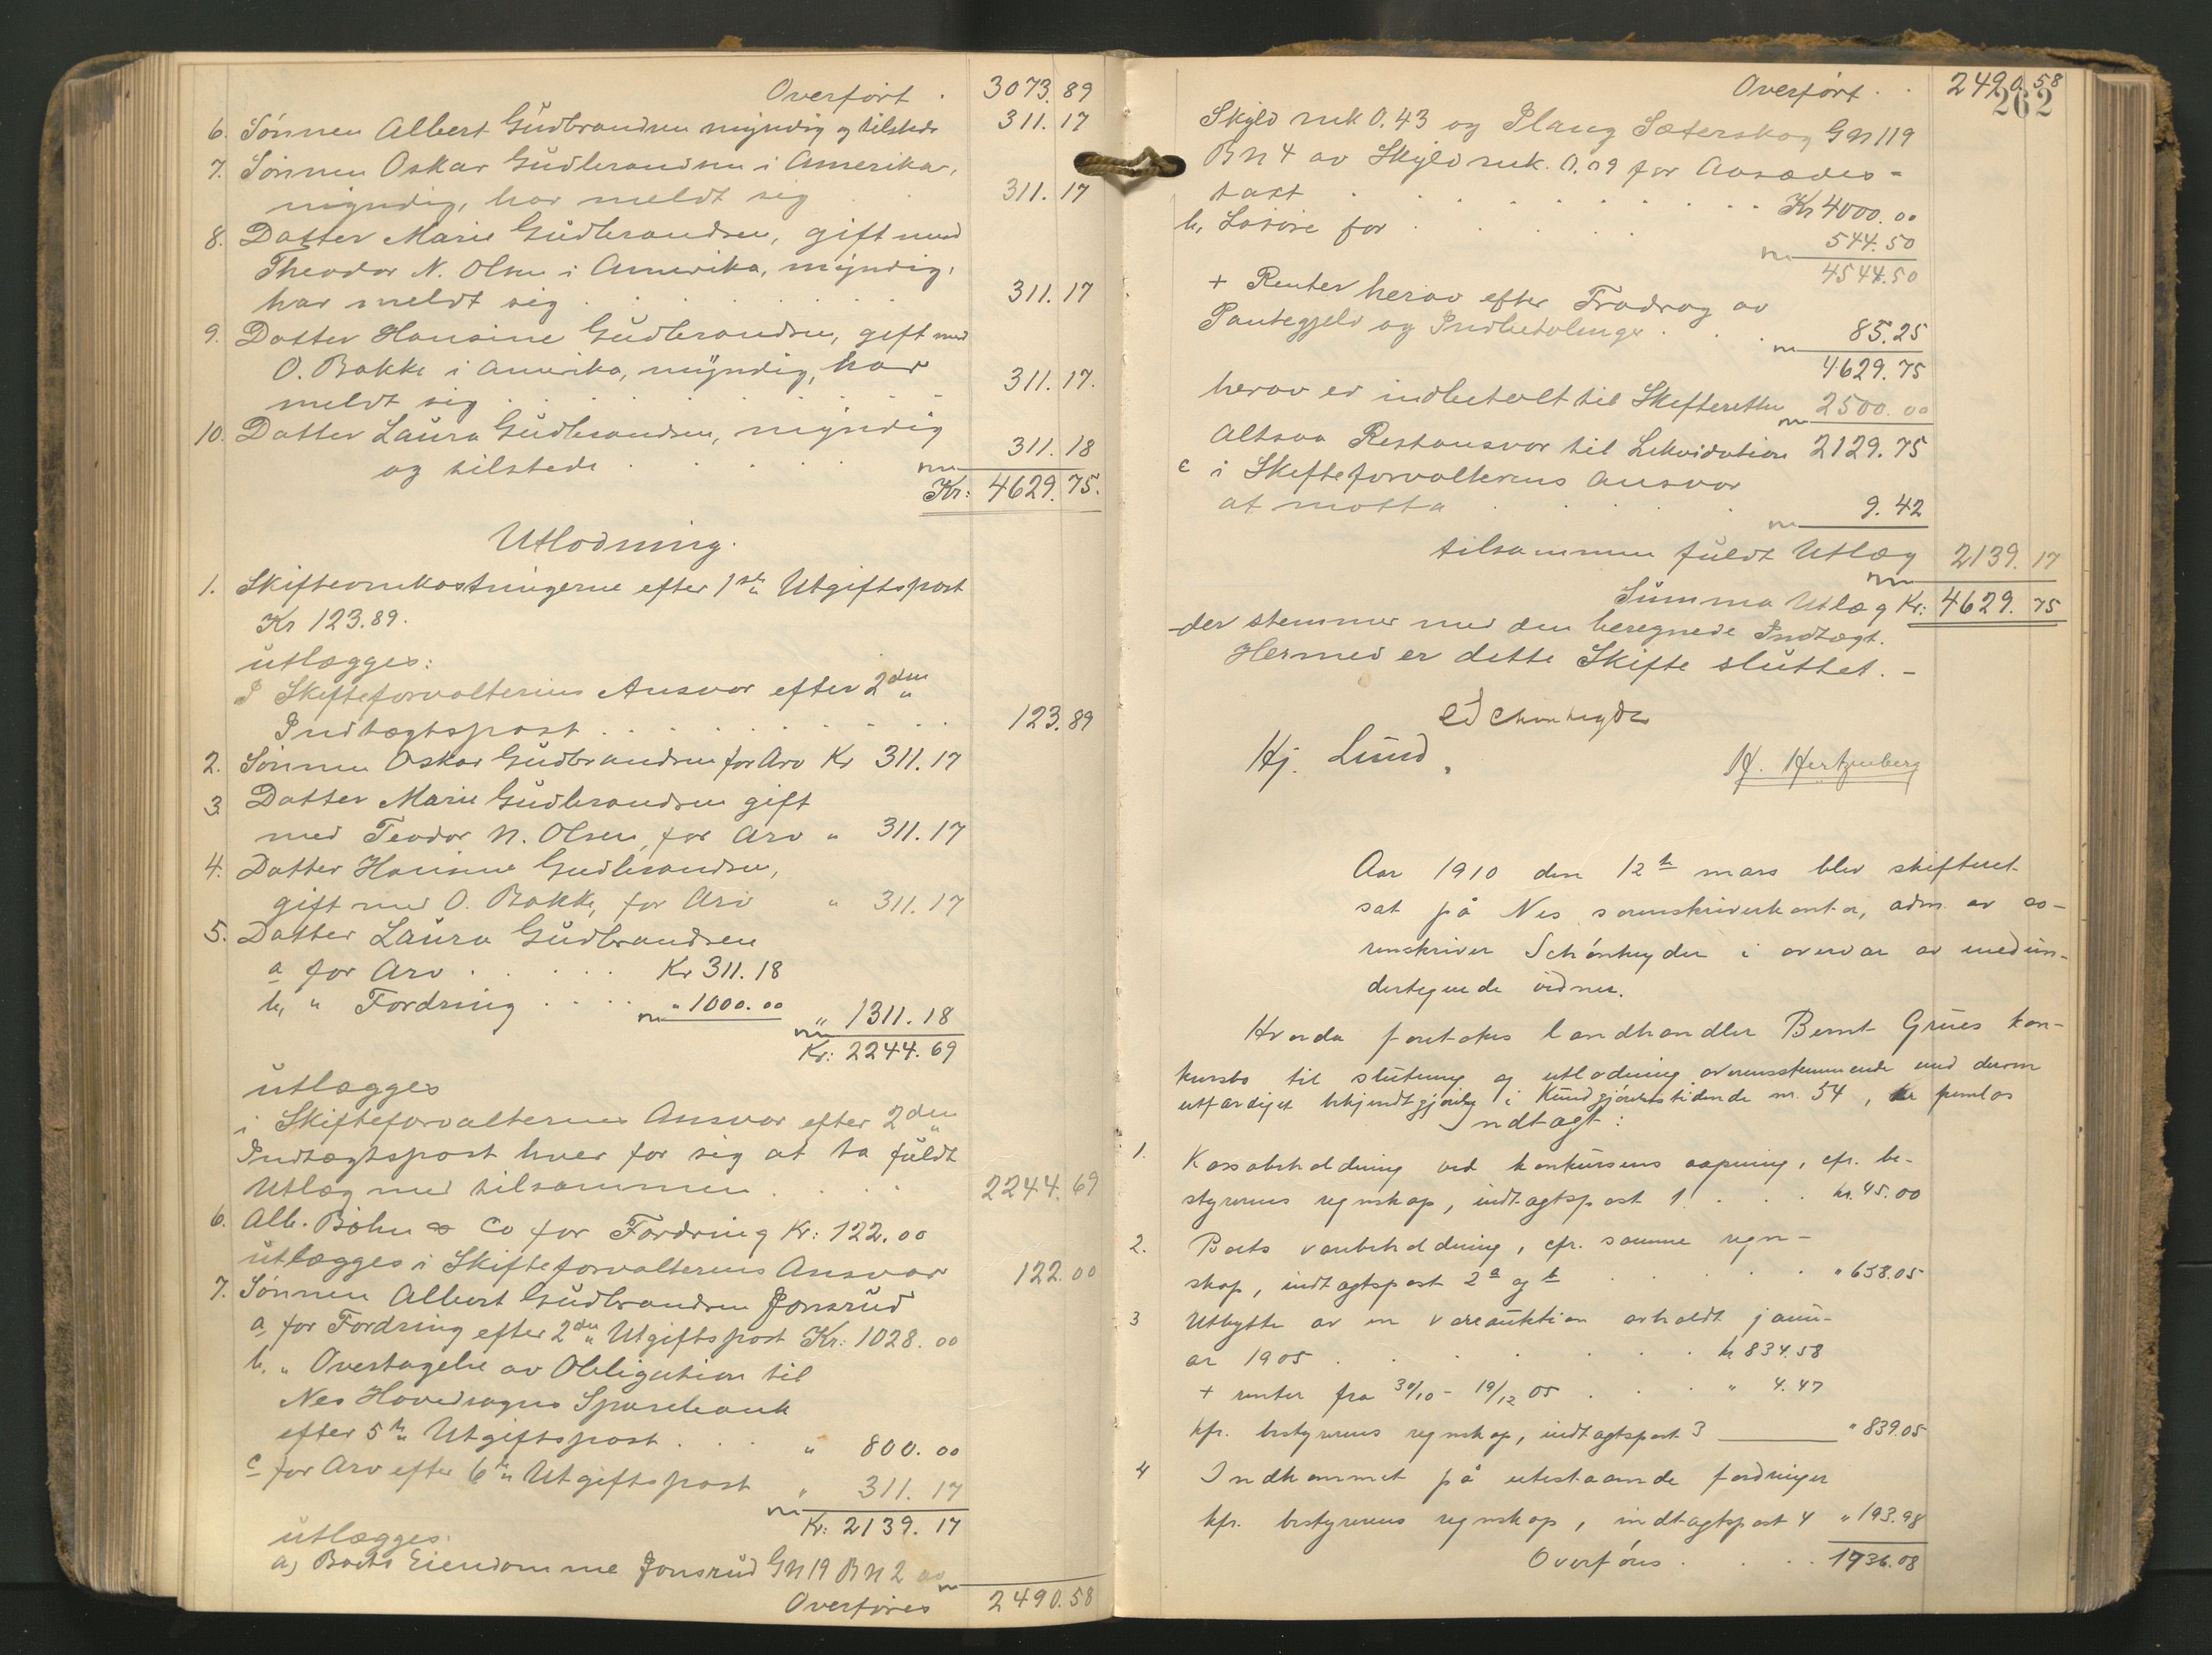 Overført . 3073.89
6. Sønnen Albert Gudbrandsen myndig og tilstede 311.17
7. Sønnen Oskar Gudbrandsen i Amerika,
myndig, har meldt sig . . 311.17
8. Datter Marie Gudbrandsen, gift med
Theodor N. Olsen i Amerika, myndig,
har meldt sig . . . . . . . . 311.17
9. Datter Hansine Gudbrandsen, gift med
O. Bakke i Amerika, myndig, har
meldt sig . . . . . . . . . 311.17.
10. Datter Laura Gudbrandsen, myndig
og tilstede . . . . . 311.18
Kr: 4629.75.
Utlodning.
1. Skifteomkostningerne efter 1ste Utgiftspost
Kr 123.89.
utlægges:
I Skifteforvalterens Ansvar efter 2den
Indtægtspost . . . . . . . . 123.89
2. Sønnen Oskar Gudbrandsen for Arv Kr 311.17
3. Datter Marie Gudbrandsen gift
med Teodor N. Olsen, for Arv " 311.17
4. Datter Hansine Gudbrandsen,
gift med O. Bakke, for Arv " 311.17
5. Datter Laura Gudbrandsen
a for Arv . . . . . Kr 311.18
b, " Fordring . . . . " 1000.00
" 1311.18
Kr: 2244.69
utlægges
i Skifteforvalterens Ansvar efter 2den
Indtægtspost hver for sig at ta fuldt
Utlæg med tilsammen . . . . 2244.69
6. Alb. Bøhn & Co for Fordring Kr: 122.00
utlægges i Skifteforvalterens Ansvar 122.00
7. Sønnen Albert Gudbrandsen Jonsrud
a, for Fordring efter 2den Utgiftspost Kr: 1028.00
b, " Overtagelse av Obligation til
Nes Hovedsogns Sparebank
efter 5te Utgiftspost . . . " 800.00
c for Arv efter 6te Utgiftspost " 311.17
Kr: 2139.17
utlægges:
a) Boets Eiendomme Jonsrud GN 19 BN 2 av
Overføres 2490.58
262
Overført . . 2490.58
Skyld mk 0.43 og Plang Sæterskog GN 119
BN 4 av Skyld mk. 0.09 for Avsædes-
taxt . . . . . . . . . . Kr 4000.00
b, Løsøre for . . . . . 544.50
4544.50
+ Renter herav efter Fradrag av
Pantegjeld og Indbetalinger . . . 85.25
4629.75
herav er indbetalt til Skifteretten 2500.00
Altsaa Restansvar til Likvidation 2129.75
c i Skifteforvalterens Ansvar
at motta . . . . . 9.42
tilsammen fuldt Utlæg 2139.17
Summa Utlæg Kr: 4629.75
der stemmer med den beregnede Indtægt.
Hermed er dette Skifte sluttet. -
E Schønheyder
Hj. Lund.
H. Hertzenberg
Aar 1910 den 12te mars blev skifteret
sat på Nes sorenskriverkontor, adm. av so-
renskriver Schønheyder i overvær av medun-
dertegnede vidner.
Hvorda foretokes landhandler Bernt Grues kon-
kursbo til slutning og utlodning overensstemmende med derom
utfærdiget bekjendtgjørelse i Kundgjørelsestidende nr. 54,
Indtægt:
1. Kassabeholdning ved konkursens aapning, cfr. be-
styrerens regnskap, indtægtspost 1. . . . kr. 45.00
2. Boets varebeholdning, cfr. samme regn-
skap, indtægtspost 2 a og b . . . . " 658.05
3 Utbytte av en vareauktion avholdt janu-
ar 1905 . . . . . . . kr 834.58
+ renter fra 30/10 - 19/12 05 . . . " 4.47
kfr. bestyrerens regnskap, indtægtspost 3 " 839.05
4 Indkommet på utestaaende fordringer
kfr. bestyrerens regnskap, indtægtspost 4 " 193.98
Overføres . . . . 1736.08